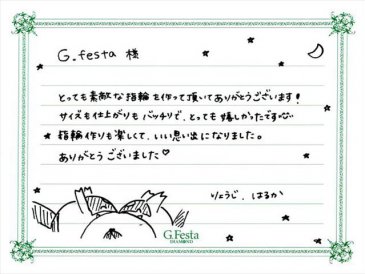 G.festa 様
とっても素敵な指輪を作って頂いてありがとうございます!
サイズも仕上がりもバッチリで、とっても嬉しかったです
指輪作りも楽しくて、いい思い出になりました。
ありがとうございました♡
りょうじ、はるか
G.Festa
DIAMOND